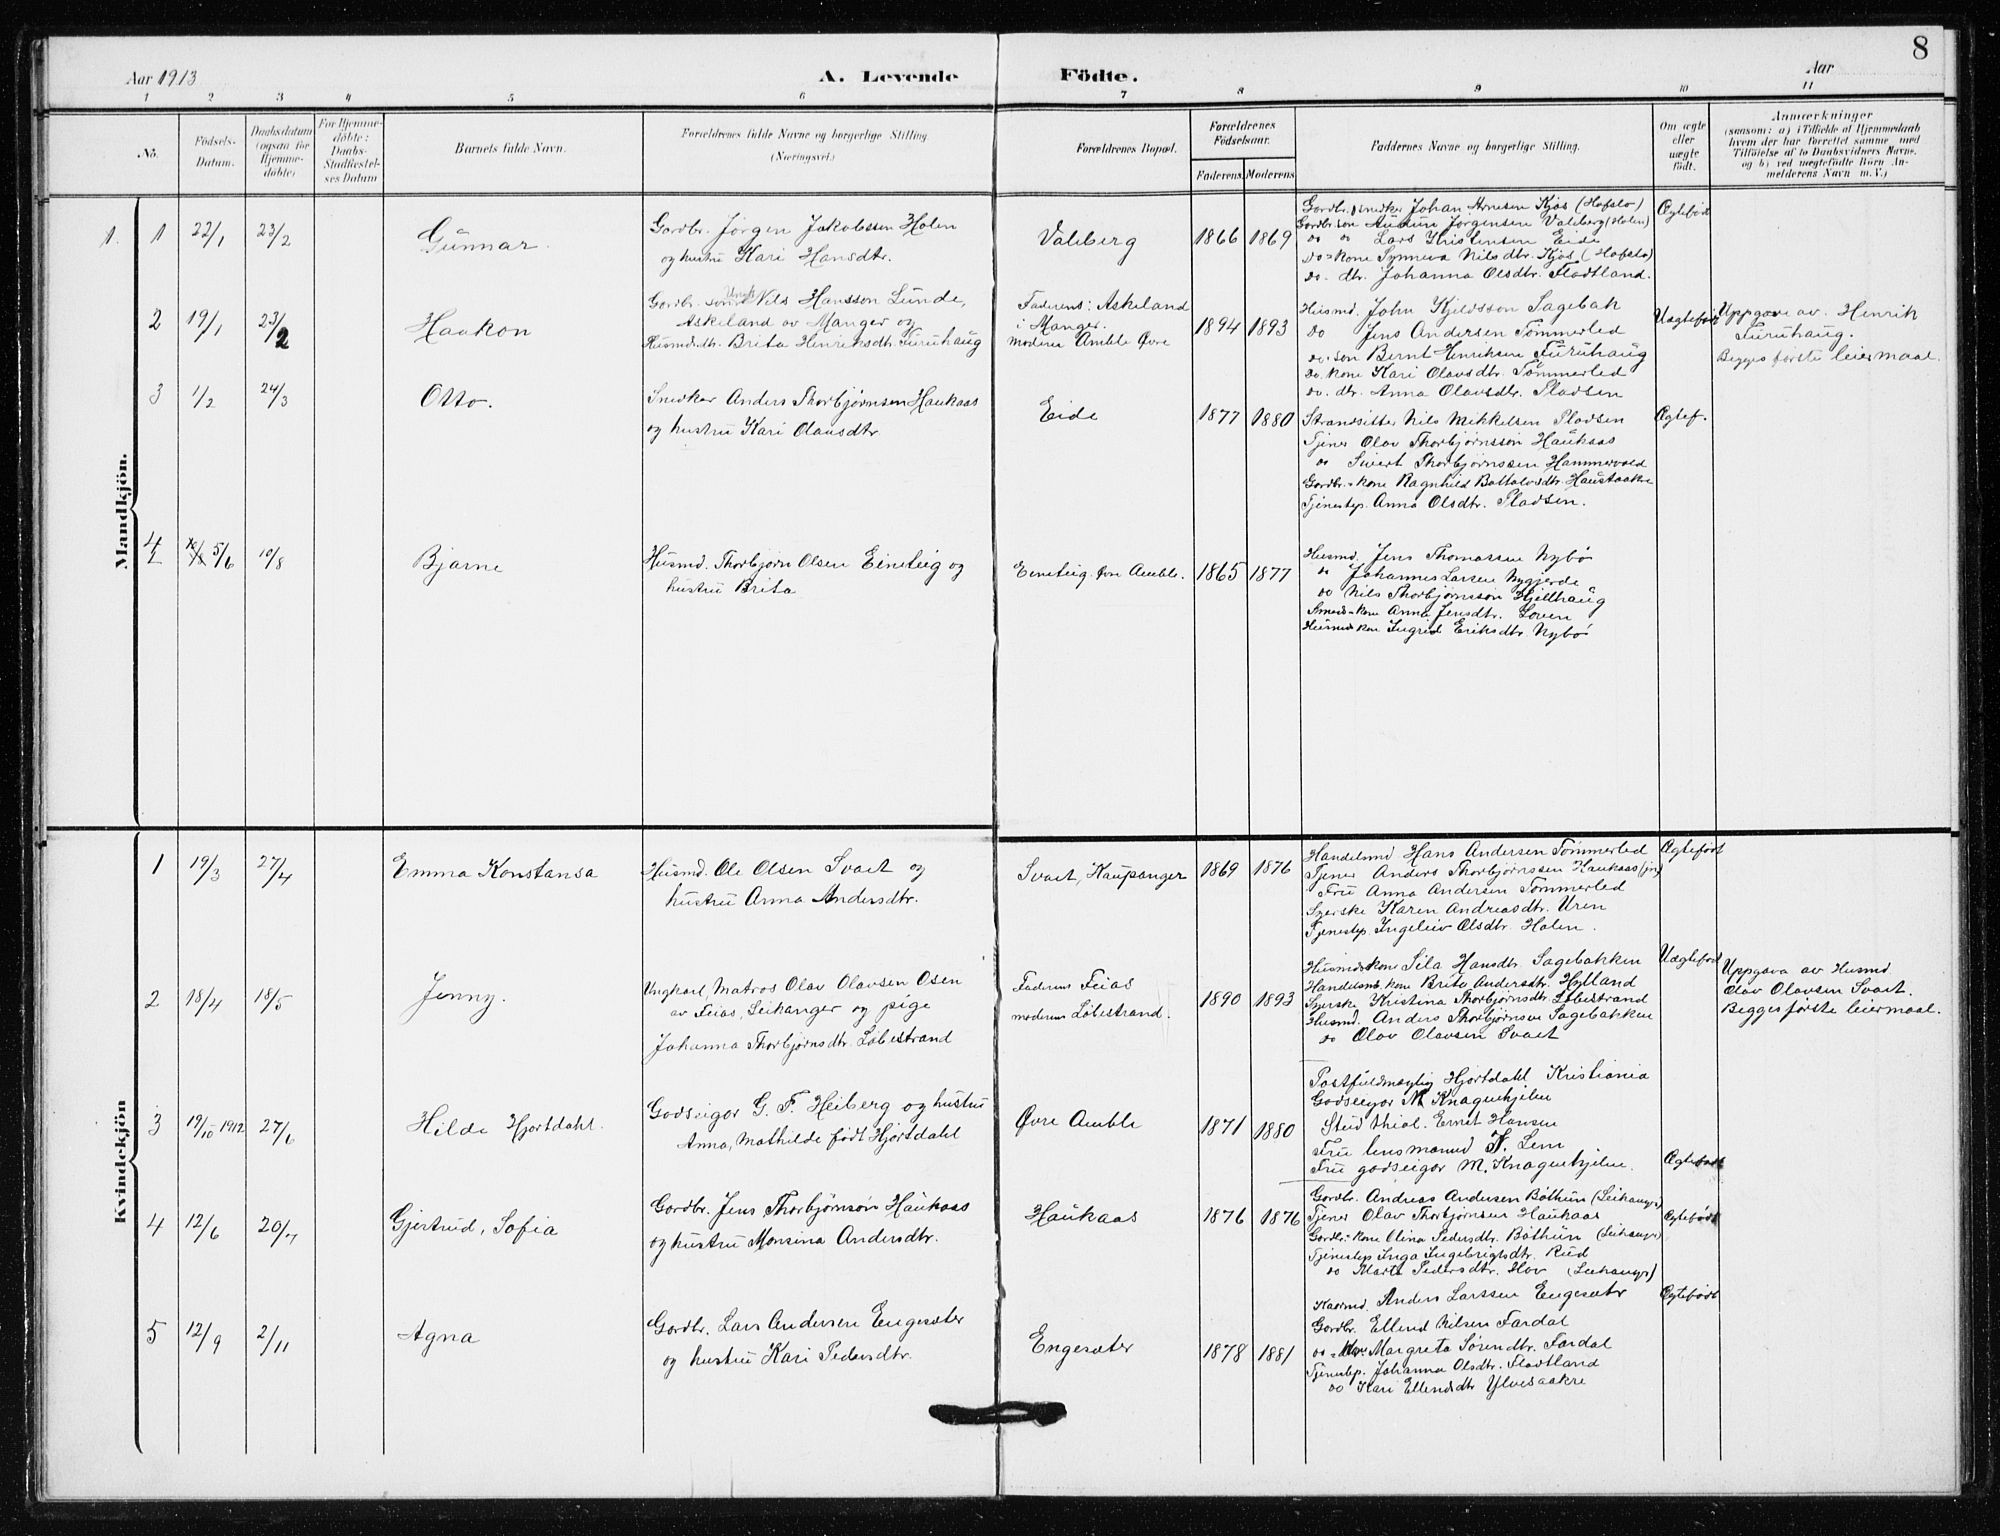 8
Aar 1913
A. Levende Födte.
Aar
1 2 3 4 5 6 7 8 9 10 11
No.
Födsels-Datum.
Daabsdatum (ogsaa for Hjemme-döbte)
For Hjemme-döbte: Daabs-Stadfæstel-ses Datum
Barnets fulde Navn.
Forældrenes fulde Navne og borgerlige Stilling. (Næringsvei.)
Forældrenes Bopæl.
Forældrenes Födselsaar.
Faderens. Moderens
Faddernes Navne og borgerlige Stilling.
Om ægte eller uægte födt.
Anmærkninger
(saasom: a) i Tilfælde af Hjemmedaab
hvem der har forrettet samme med
Tilföielse af to Daabsvidners Navne,
og b) ved uægtefödte Börn An-
melderens Navn m. V.)
Mandkjön.
1. 1 22/1 23/2
Gunnar.
Gardbr. Jørgen Jakobssen Holen
og hustru Kari Hansdtr.
Valeberg
1866 1869
Gardbr. snedker Johan Arnesen Kjøs (Hofslo)
Gardbr. søn Audun Jørgensen Valeberg (Holen)
do do Lars Kristensen Eide
do - kone Synneva Nilsdtr. Kjøs (Hofslo)
do. dtr. Johanna Olsdtr. Flodtland.
Ægtefødt
2 19/1 23/2
Haakon
Gardbr. søn Ungk. Nils Hansson Lunde,
Askeland av Manger og
Husmd.dtr. Brita Henriksdtr. Furuhaug
Faderens: Askeland
i Manger.
moderen Amble Øvre
1894 1893
Husmd. John Kjeldsson Sagebak
do Jens Andersen Tømmerled
do. søn Bernt Henriksen Furuhaug
do. kone Kari Olavsdtr. Tømmerled
do. dtr. Anna Olavsdtr. Pladsen
Uægtefødt
Uppgave av Henrik
Furuhaug.
Begges første leiermaal.
3 1/2 24/3
Otto.
Snedker Anders Thorbjørnsen Haukaas
og hustru Kari Olavsdtr
Eide
1877 1880
Strandsitter Nils Mikkelsen Pladsen
Tjener Olav Thorbjørnsson Haukaas
do Sivert Thorbjørnssen Hammervold
Gardbr.-kone Ragnhild Bottolvsdtr. Haustaakre
Tjenestep. Anna Olsdtr. Pladsen.
Ægtef.
4 5/6 10/8
Bjarne
Husmd. Thorbjørn Olsen Einsteig og
hustru Brita
Einsteig. Øvre Amble.
1865 1877
Husmd. Jens Thomassen Nybø
do Johannes Larsen Nygjerde
do Nils Thorbjørnsson Hjellhaug
Smeds-kone Anna Jensdtr. Loven
Husmdskone Ingrid Eriksdtr. Nybø
Kvindekjön
1 19/3 27/4
Emma Konstansa
Husmd. Ole Olsen Svaet og
hustru Anna Andersdtr.
Svaet, Kaupanger
1869 1876
Handelsmd Hans Andersen Tømmerled
Tjener Anders Thorbjørnssen Haukaas (jr)
Fru Anna Andersen Tømmerled
Syerske Karen Andreasdtr. Uren
Tjenestep. Ingeleiv Olsdtr. Holen.
Ægtefødt
2 18/4 18/5
Jenny.
Ungkarl, Matros Olav Olavsen Osen
av Feias, Leikanger og pige
Johanna Thorbjørnsdtr. Løbestrand
Faderens Feias
moderens Løbestrand.
1890 1893
Husmdskone Sila Hansdtr. Sagebakken
Handelsmd. kone Brita Andersdtr. Hylland
Syerske Kristina Thorbjørnsdtr. Løbestrand
Husmd. Anders Thorbjørnsen Sagebakken
do Olav Olavsen Svaet
Uægtefødt
Uppgava av Husmd.
Olav Olavsen Svaet.
Begges første leiermaal.
3 19/10 1912 27/6
Hilde Hjortdahl.
Godseigar G. F. Heiberg og hustru
Anna, Mathilde født Hjortdahl
Øvre Amble
1871 1880
Postfuldmægtig Hjortdahl Kristiania
Godseigar M. Knagenhjelm
Stud. thiol. Ernst Hansen
Fru lensmannd Lem
Fru godseigar M. Knagenhjelm.
Ægtefødt
4 12/6 20/7
Gjertrud, Sofia
Gardbr. Jens Thorbjørnson Haukaas
og hustru Monsina Andersdtr.
Haukaas
1876 1876
Gardbr. Andreas Andersen Bøthun (Leikanger)
Tjener Olav Thorbjørnsen Haukaas
Gardbr.-kone Olina Pedersdtr. Bøthun (Leikanger)
Tjenestep Inga Ingebrigtsdtr. Rud
do Marta Pedersdtr. Hov (Leikanger)
Ægtefødt
5 12/9 2/11
Agna
Gardbr. Lars Andersen Engesæter
og hustru Kari Pedersdtr.
Engesæter
1878 1881
Kaarmd. Anders Larssen Engesætr
Gardbr. Ellend Nilsen Fardal
do - kone Margreta Sørendtr. Fardal
Tjenestep. Johanna Olsdtr. Flodtland
do Kari Ellendsdtr Ylvesaakre
Ægtefødt